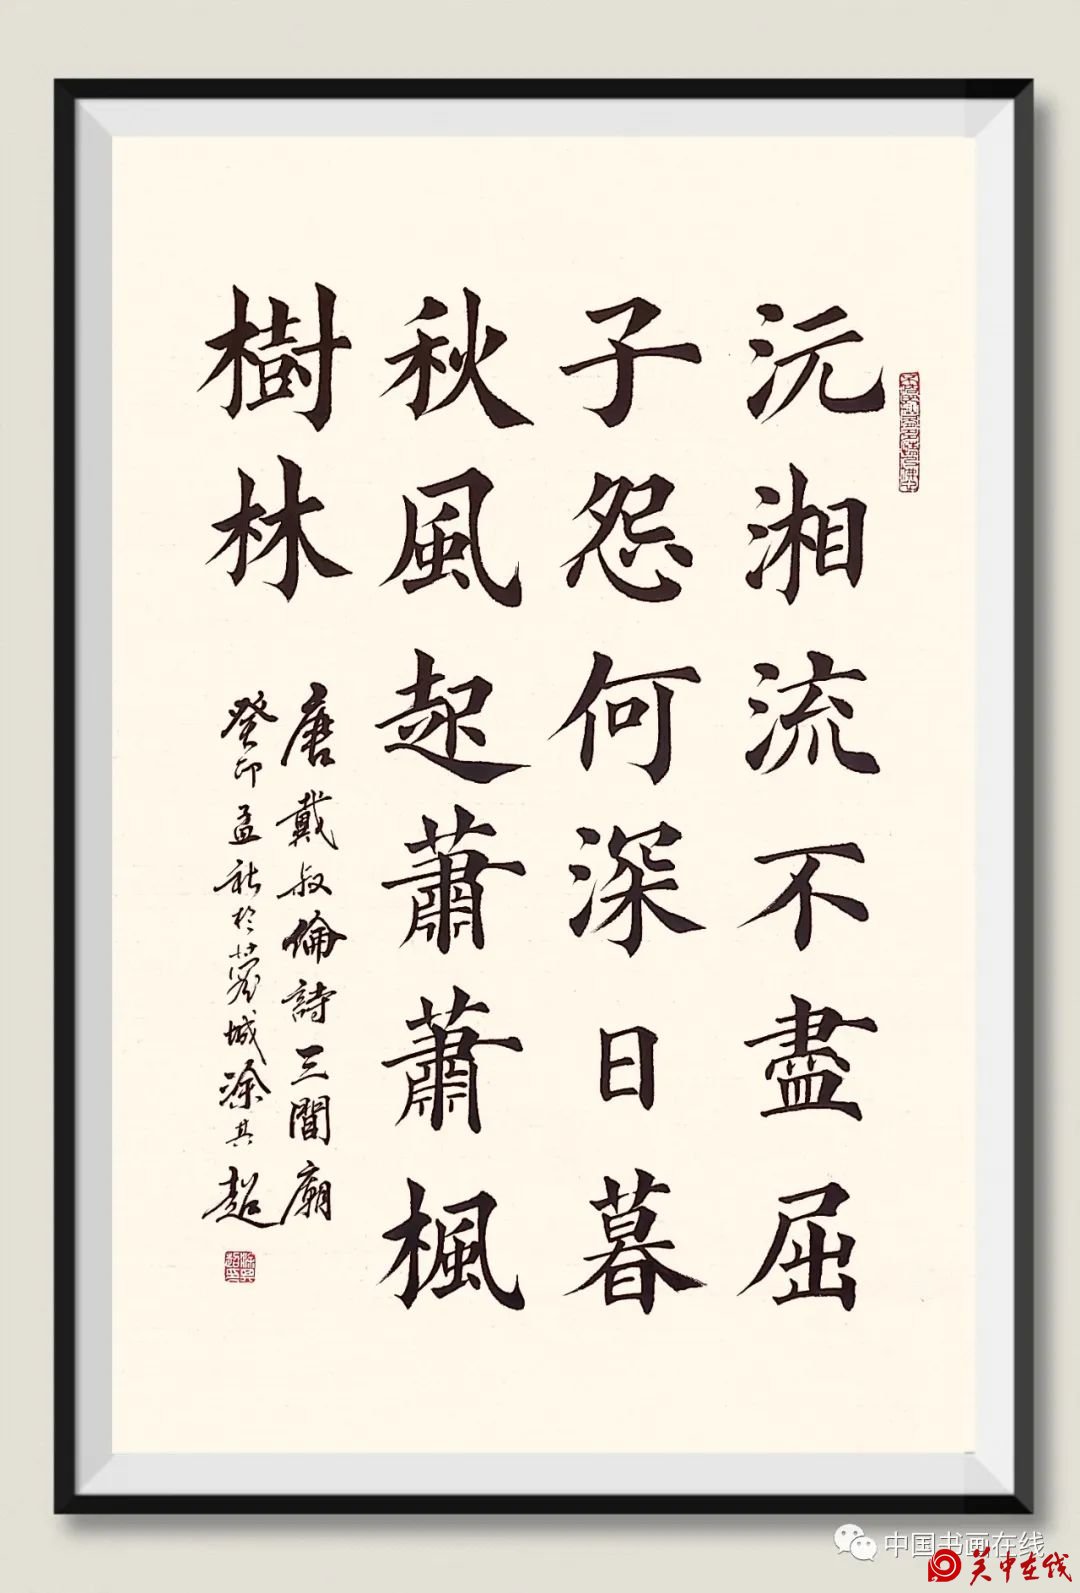 沅湘流不盡屈
子怨何深日暮
秋風起蕭蕭楓
樹林
唐戴叔倫詩三閭廟
癸卯孟秋於蓉城涂其超
中国书画在线
关中在线